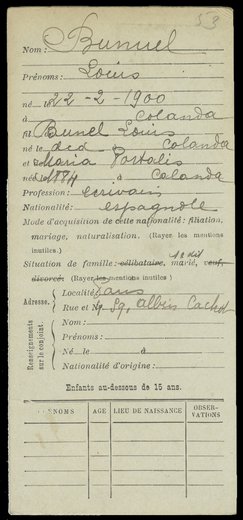 53
Nom: Bunuel
Prénoms: Louis
né le 22-2-1900
à Colanda
fil Bunel Louis
né le dcd à Colanda
et de Maria Portalis
née le 1884 à Colanda
Profession: ecrivain
Nationalité: espagnole
Mode d'acquisition de cette nationalité: filiation,
mariage, naturalisation. (Rayer les mentions
inutiles.)
Situation de famille: célibataire, marié, veuf,
divorcé. (Rayer les mentions inutiles)
Adresse. Localité Paris
Rue et N° 39, Albin Cachot
Renseignements sur le conjoint
Nom:
Prénoms:
Né le à
Nationalité d'origine:
Enfants au-dessous de 15 ans.
PRÉNOMS AGE LIEU DE NAISSANCE OBSER-
VATIONS